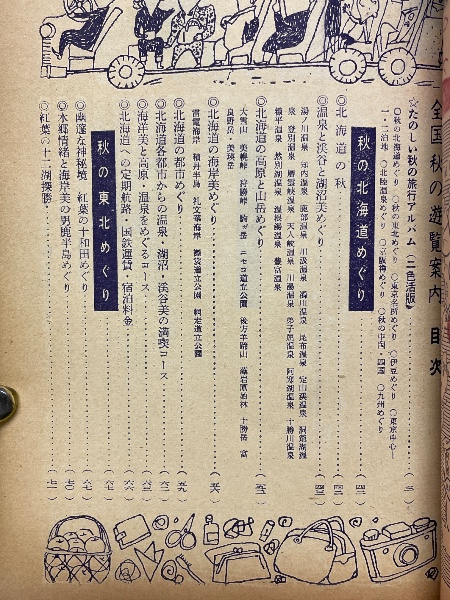 全国秋の遊覧案内 目次
☆たのしい秋の旅行アルバム(二色活版)
○秋の北海道めぐり ○秋の東北めぐり ○東京名所めぐり ○伊豆めぐり ○東京中心―
一・二泊地 ○北陸温泉めぐり ○京阪神めぐり ○秋の中国・四国 ○九州めぐり
秋の北海道めぐり
◎北海道の秋
◎温泉と渓谷と湖沼美めぐり
湯ノ川温泉 知内温泉 鹿部温泉 川汲温泉 濁川温泉 昆布温泉 定山渓温泉 洞爺湖温
泉 登別温泉 層雲峡温泉 天人峡温泉 川湯温泉 弟子屈温泉 阿寒湖温泉 十勝川温泉
糠平温泉 然別湖温泉 温根湯温泉 豊富温泉
◎北海道の高原と山岳めぐり
大雪山 美幌峠 狩勝峠 駒ガ岳 ニセコ道立公園 後方羊蹄山 藻岩原始林 十勝岳 富
良野岳・美瑛岳
◎北海道の海岸美めぐり
雷電海岸 積丹半島 礼文華海岸 襟裳道立公園 網走道立公園
◎北海道の都市めぐり
◎北海道各都市からの温泉・湖沼・渓谷美の満喫コース
◎海洋美と高原・温泉をめぐるコース
◎北海道への定期航路・国鉄運賃・宿泊料金
秋の東北めぐり
◎幽邃な神秘境 紅葉の十和田めぐり
◎水郷情緒と海岸美の男鹿半島めぐり
◎紅葉の十二湖探勝